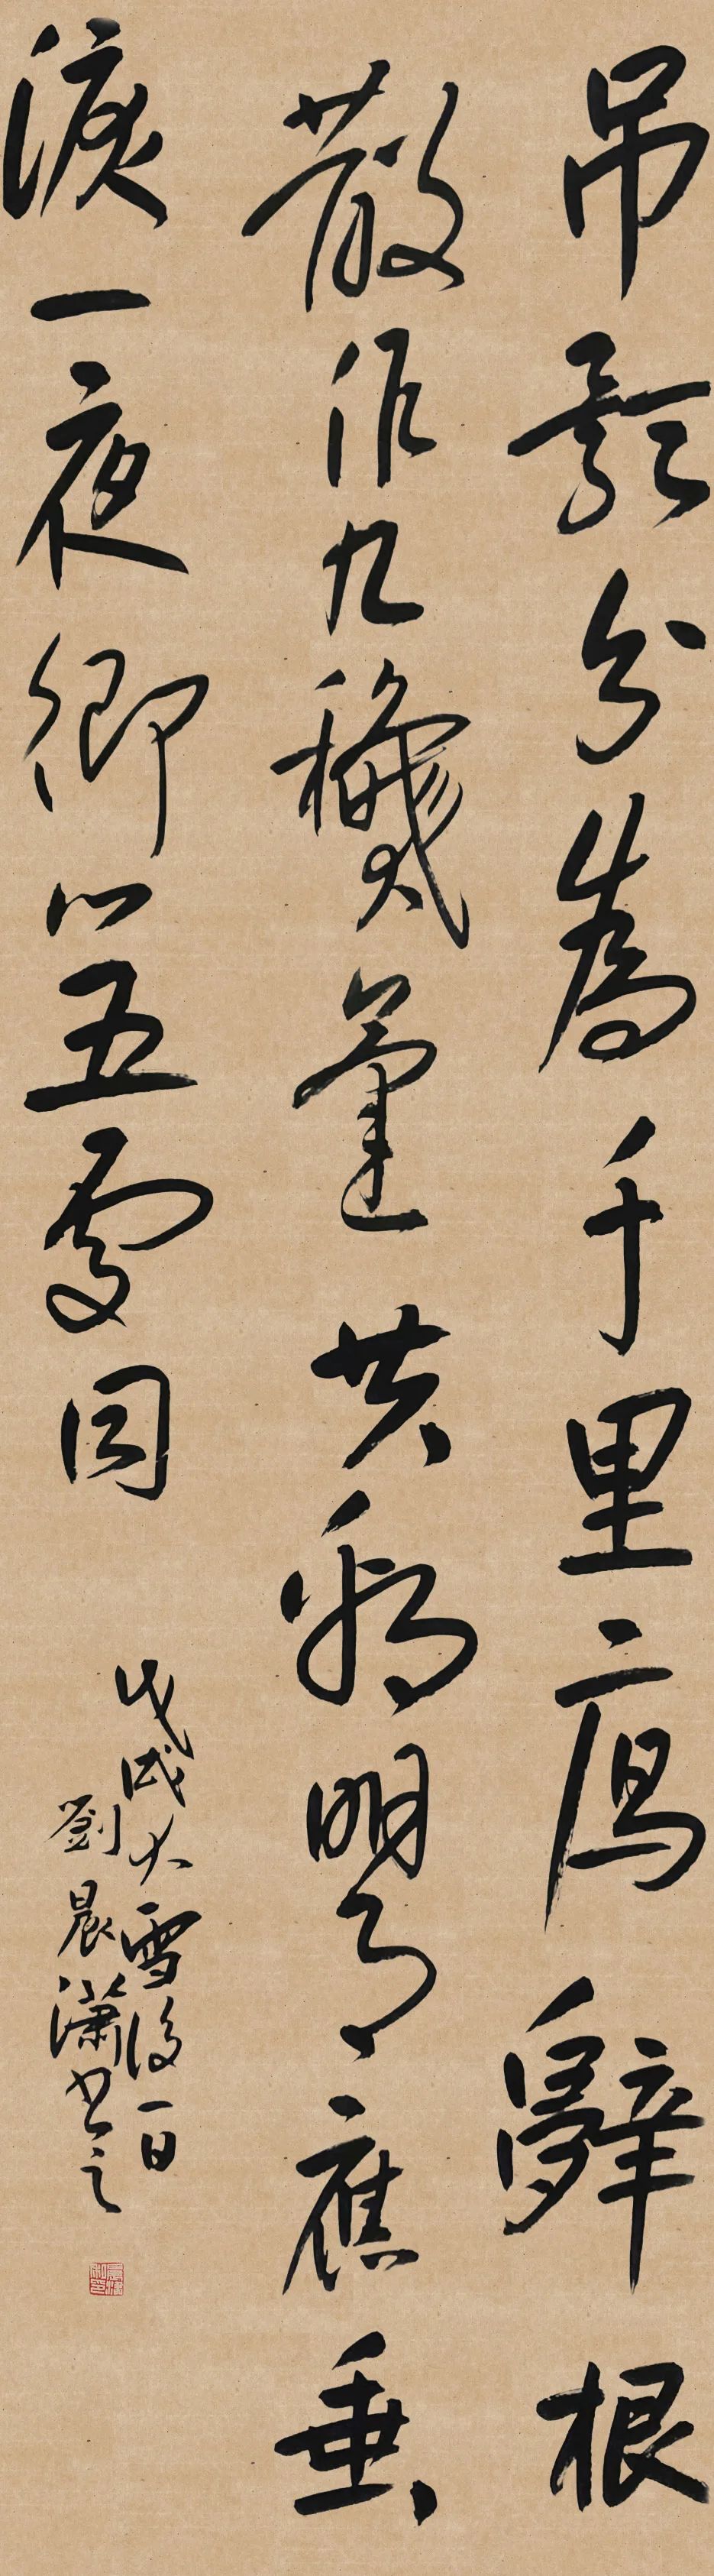 吊影分為千里鴈辭根
散作九秋蓬共看明月應垂
淚一夜鄉心五處同
戊戌大雪後一日
劉晨瀟書之